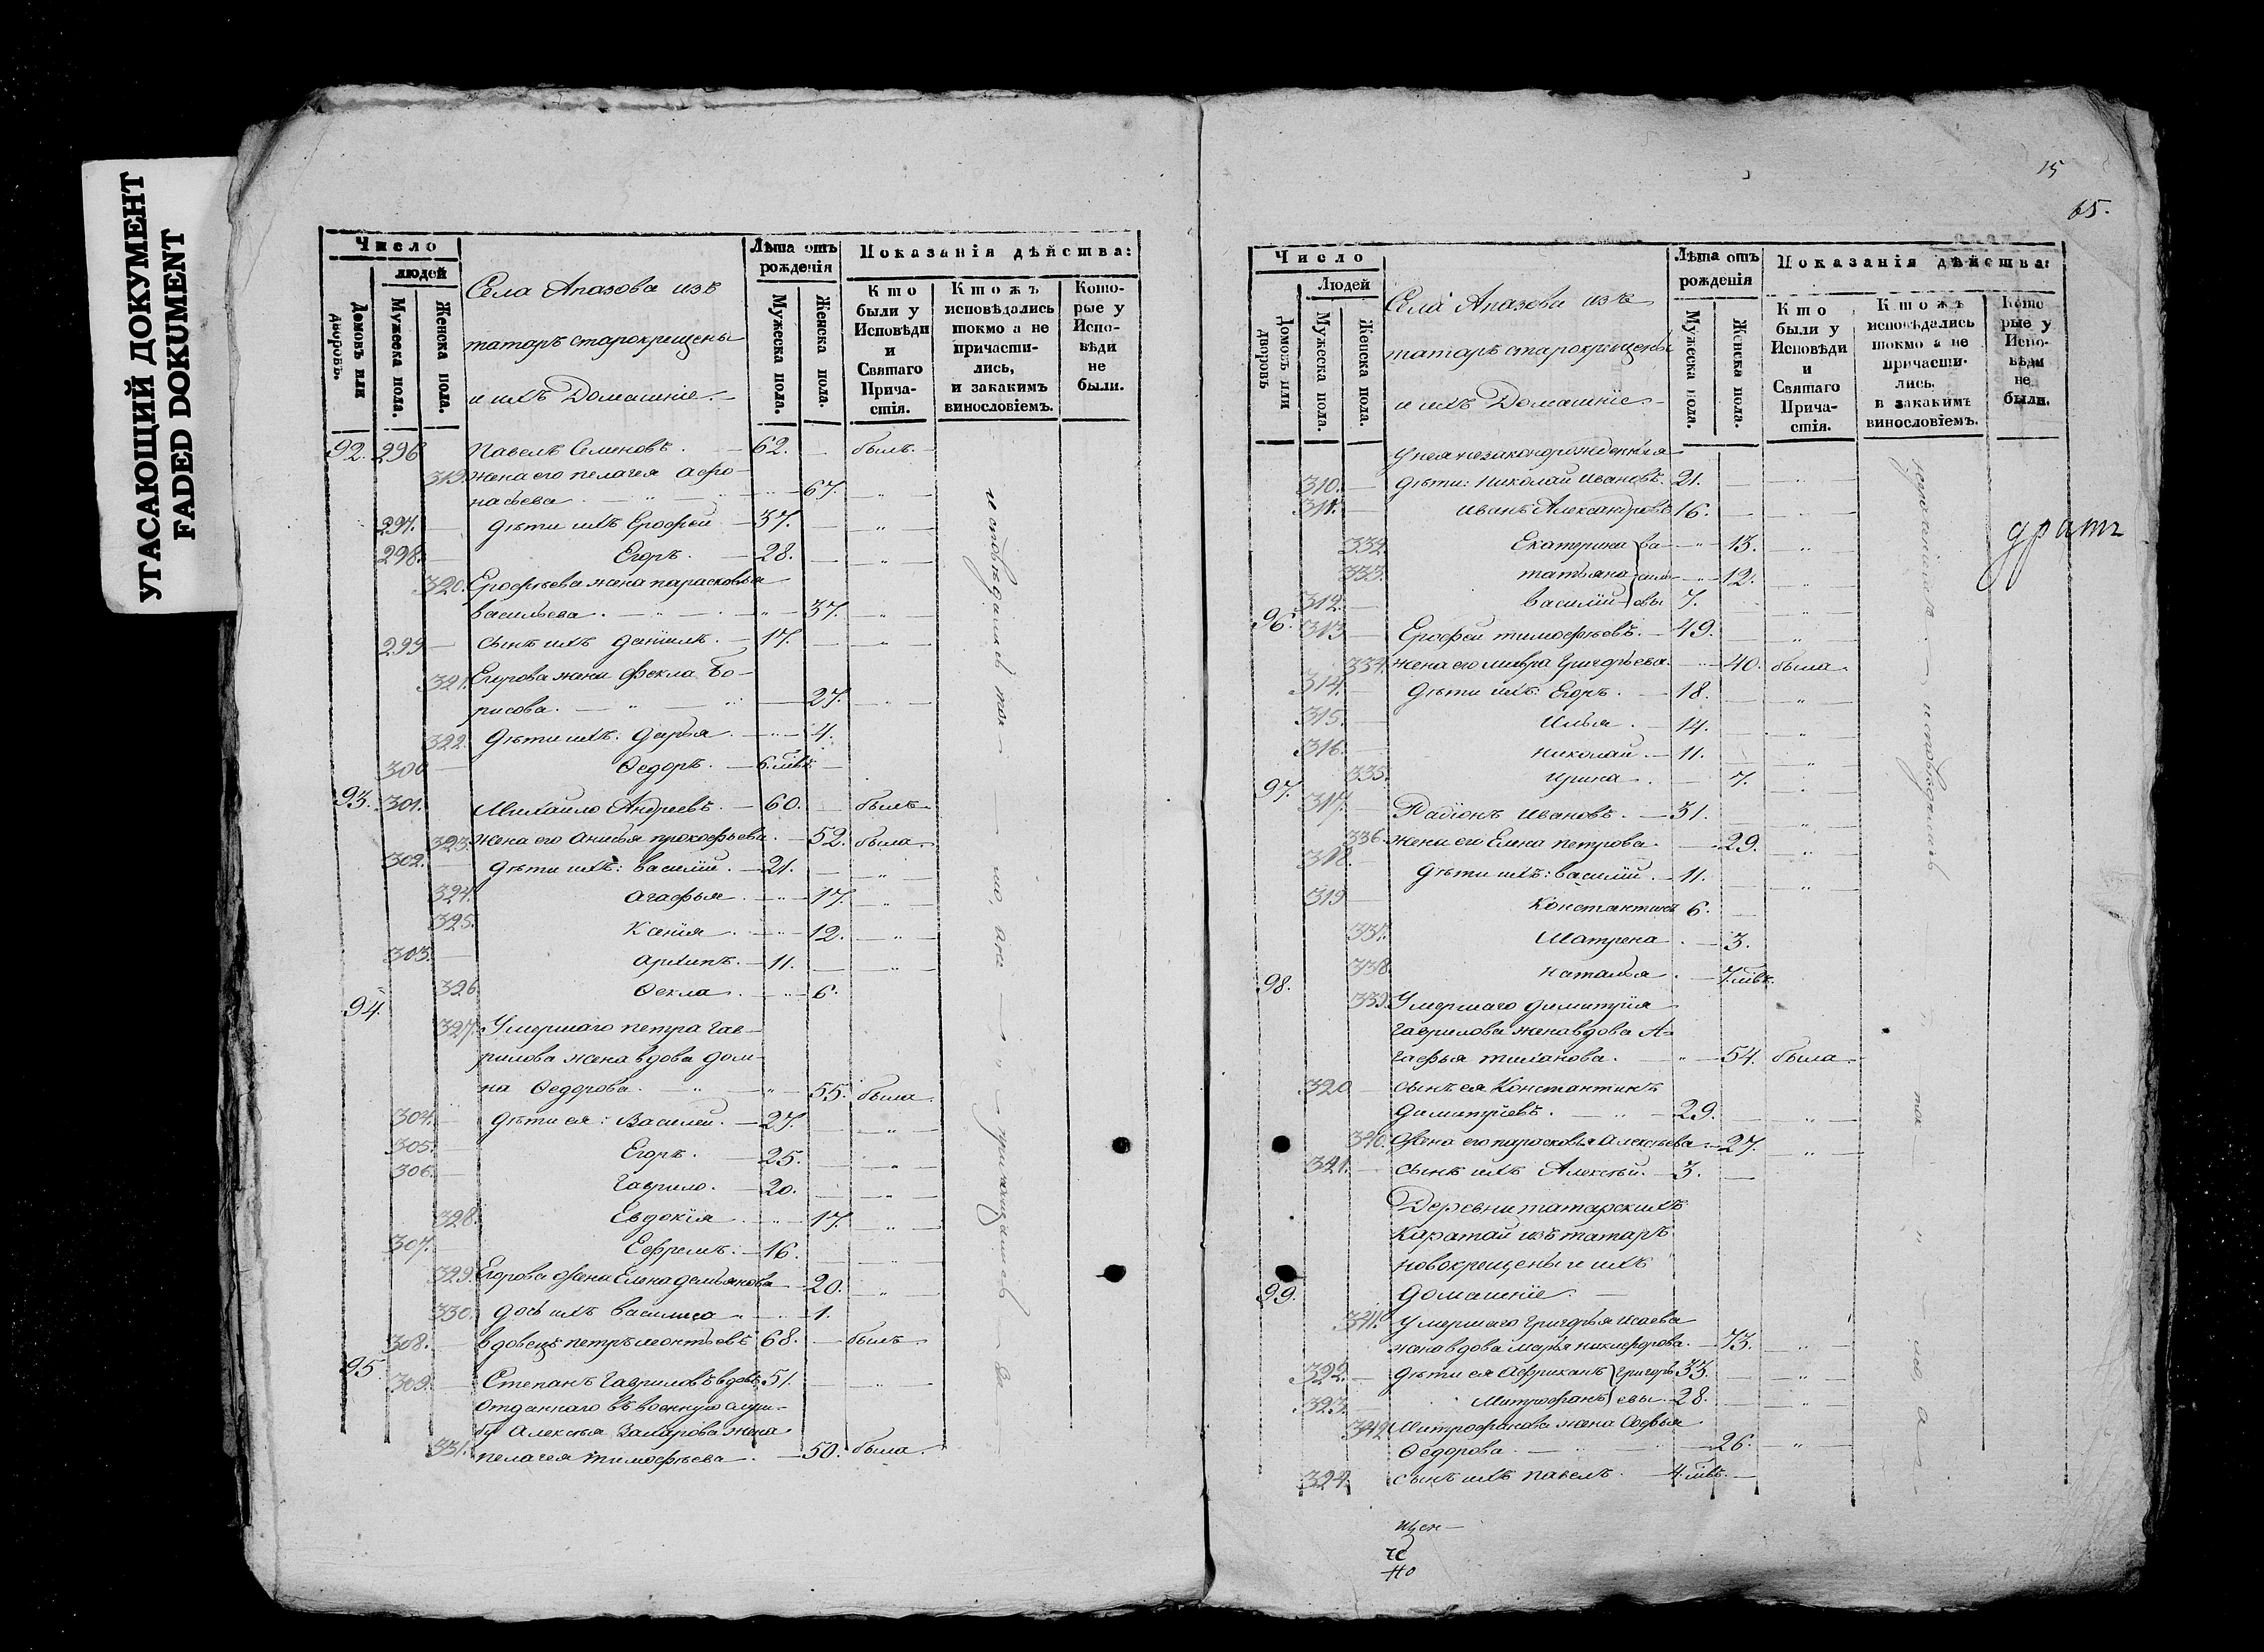 УГАСАЮЩИЙ ДОКУМЕНТ
FADED DOKUMENT
Число
людей
Домовъ или дворовъ.
Мужеска пола.
Женска пола.
Села Апазова изъ
татаръ старокрещены
и ихъ Домашніе.
Лѣта отъ рожденія
Мужеска пола.
Женска пола.
Показанія дѣйства:
Кто были у Исповѣди и Святаго Прича-стія.
Ктожъ исповѣдались токмо а не причасти-лись, и закакимъ винословіемъ.
Кото-рые у Испо-вѣди не были.
92. 296 Павелъ Семеновъ. 62. былъ.
319. жена его пелагея афо-
насьева 67. "
297. дѣти ихъ Ерофей 37. "
298. Егоръ. 28. "
320. Ерофѣева жена парасковья
васильева. 37. "
299 сынъ ихъ даніилъ. 17. "
321. Егорова жена Фекла Бо-
рисова. 27. "
322. дѣти ихъ: дарья. 4.
300 Ѳедоръ. 6. мѣс.
93. 301. Михайло Андреевъ. 60. былъ
323. жена его анисья прокофьева. 52. была.
302. дѣти ихъ: василий. 21. "
324. агафья. 17. "
325. Ксенія. 12. "
303. архипъ. 11. "
326. Ѳекла. 6.
94. 327. Умершаго петра гав-
рилова жена вдова дом-
на Ѳедорова. 55. была.
304. дѣти ея: Василей. 27. "
305. Егоръ. 25. "
306. Гаврило. 20. "
328. Евдокія. 17. "
307. Ефремъ. 16. "
329. Егорова жена Елена демьянова 20. "
330. дочь ихъ василиса 1.
308. вдовецъ петръ леонтьевъ 68. былъ
95. 309. Степанъ Гавриловъ вдовъ 51. "
отданнаго въ военную служ-
бу Алексѣя Захарова жена
331. пелагея тимофѣева. 50. была.
исповѣдались
причащались
15
65.
Число
Людей
Домовъ или дворовъ
Мужеска пола.
Женска пола.
Села Апазова изъ
татаръ старокрещены
и ихъ Домашніе
Лѣта отъ рожденія
Мужеска пола.
Женска пола.
Показанія дѣйства:
Кто были у Исповѣди и Святаго Прича-стія.
Ктожъ исповѣдались токмо а не причасти-лись. и закакимъ винословіемъ.
Кото рые у Испо-вѣди не были.
у нея незаконорожденныя
310. дѣти: николай ивановъ. 21. "
311. иванъ Александровъ 16.
332. Екатерина 13. "
333. татьяна 12. "
312. василий 7. "
96. 313 Ерофей тимофѣевъ. 49. "
334. жена его мавра Григорьева. 40. была
314. дѣти ихъ: Егоръ. 18. "
315. Илья. 14. "
316. николай. 11. "
335. ирина. 7.
97. 317. Радіонъ ивановъ. 31. "
336. жена его Елена петрова 29. "
318. дѣти ихъ: василий. 11. "
319 Константинъ 6.
337. Матрена. 3.
338. наталья. 7. мѣс.
98. 339. Умершаго димитрія
гаврилова жена вдова А-
гафья 54. была.
320 сынъ ея Константинъ
димитріевъ. 29. "
340. Жена его парасковья Алексѣева 27. "
321. сынъ ихъ Алексѣй. 3.
Деревни татарскихъ
Каратай изъ татаръ
новокрещены и ихъ
99. домашніе.
341. умершаго Григорья исаева
жена вдова марья никифорова. 73. "
322. дѣти ея Африканъ григорь 33. "
323. Митрофанъ евы 28. "
342 Митрофанова жена Софья
Ѳедорова 26. "
324. сынъ ихъ павелъ. 4. мѣс.
исповѣдались